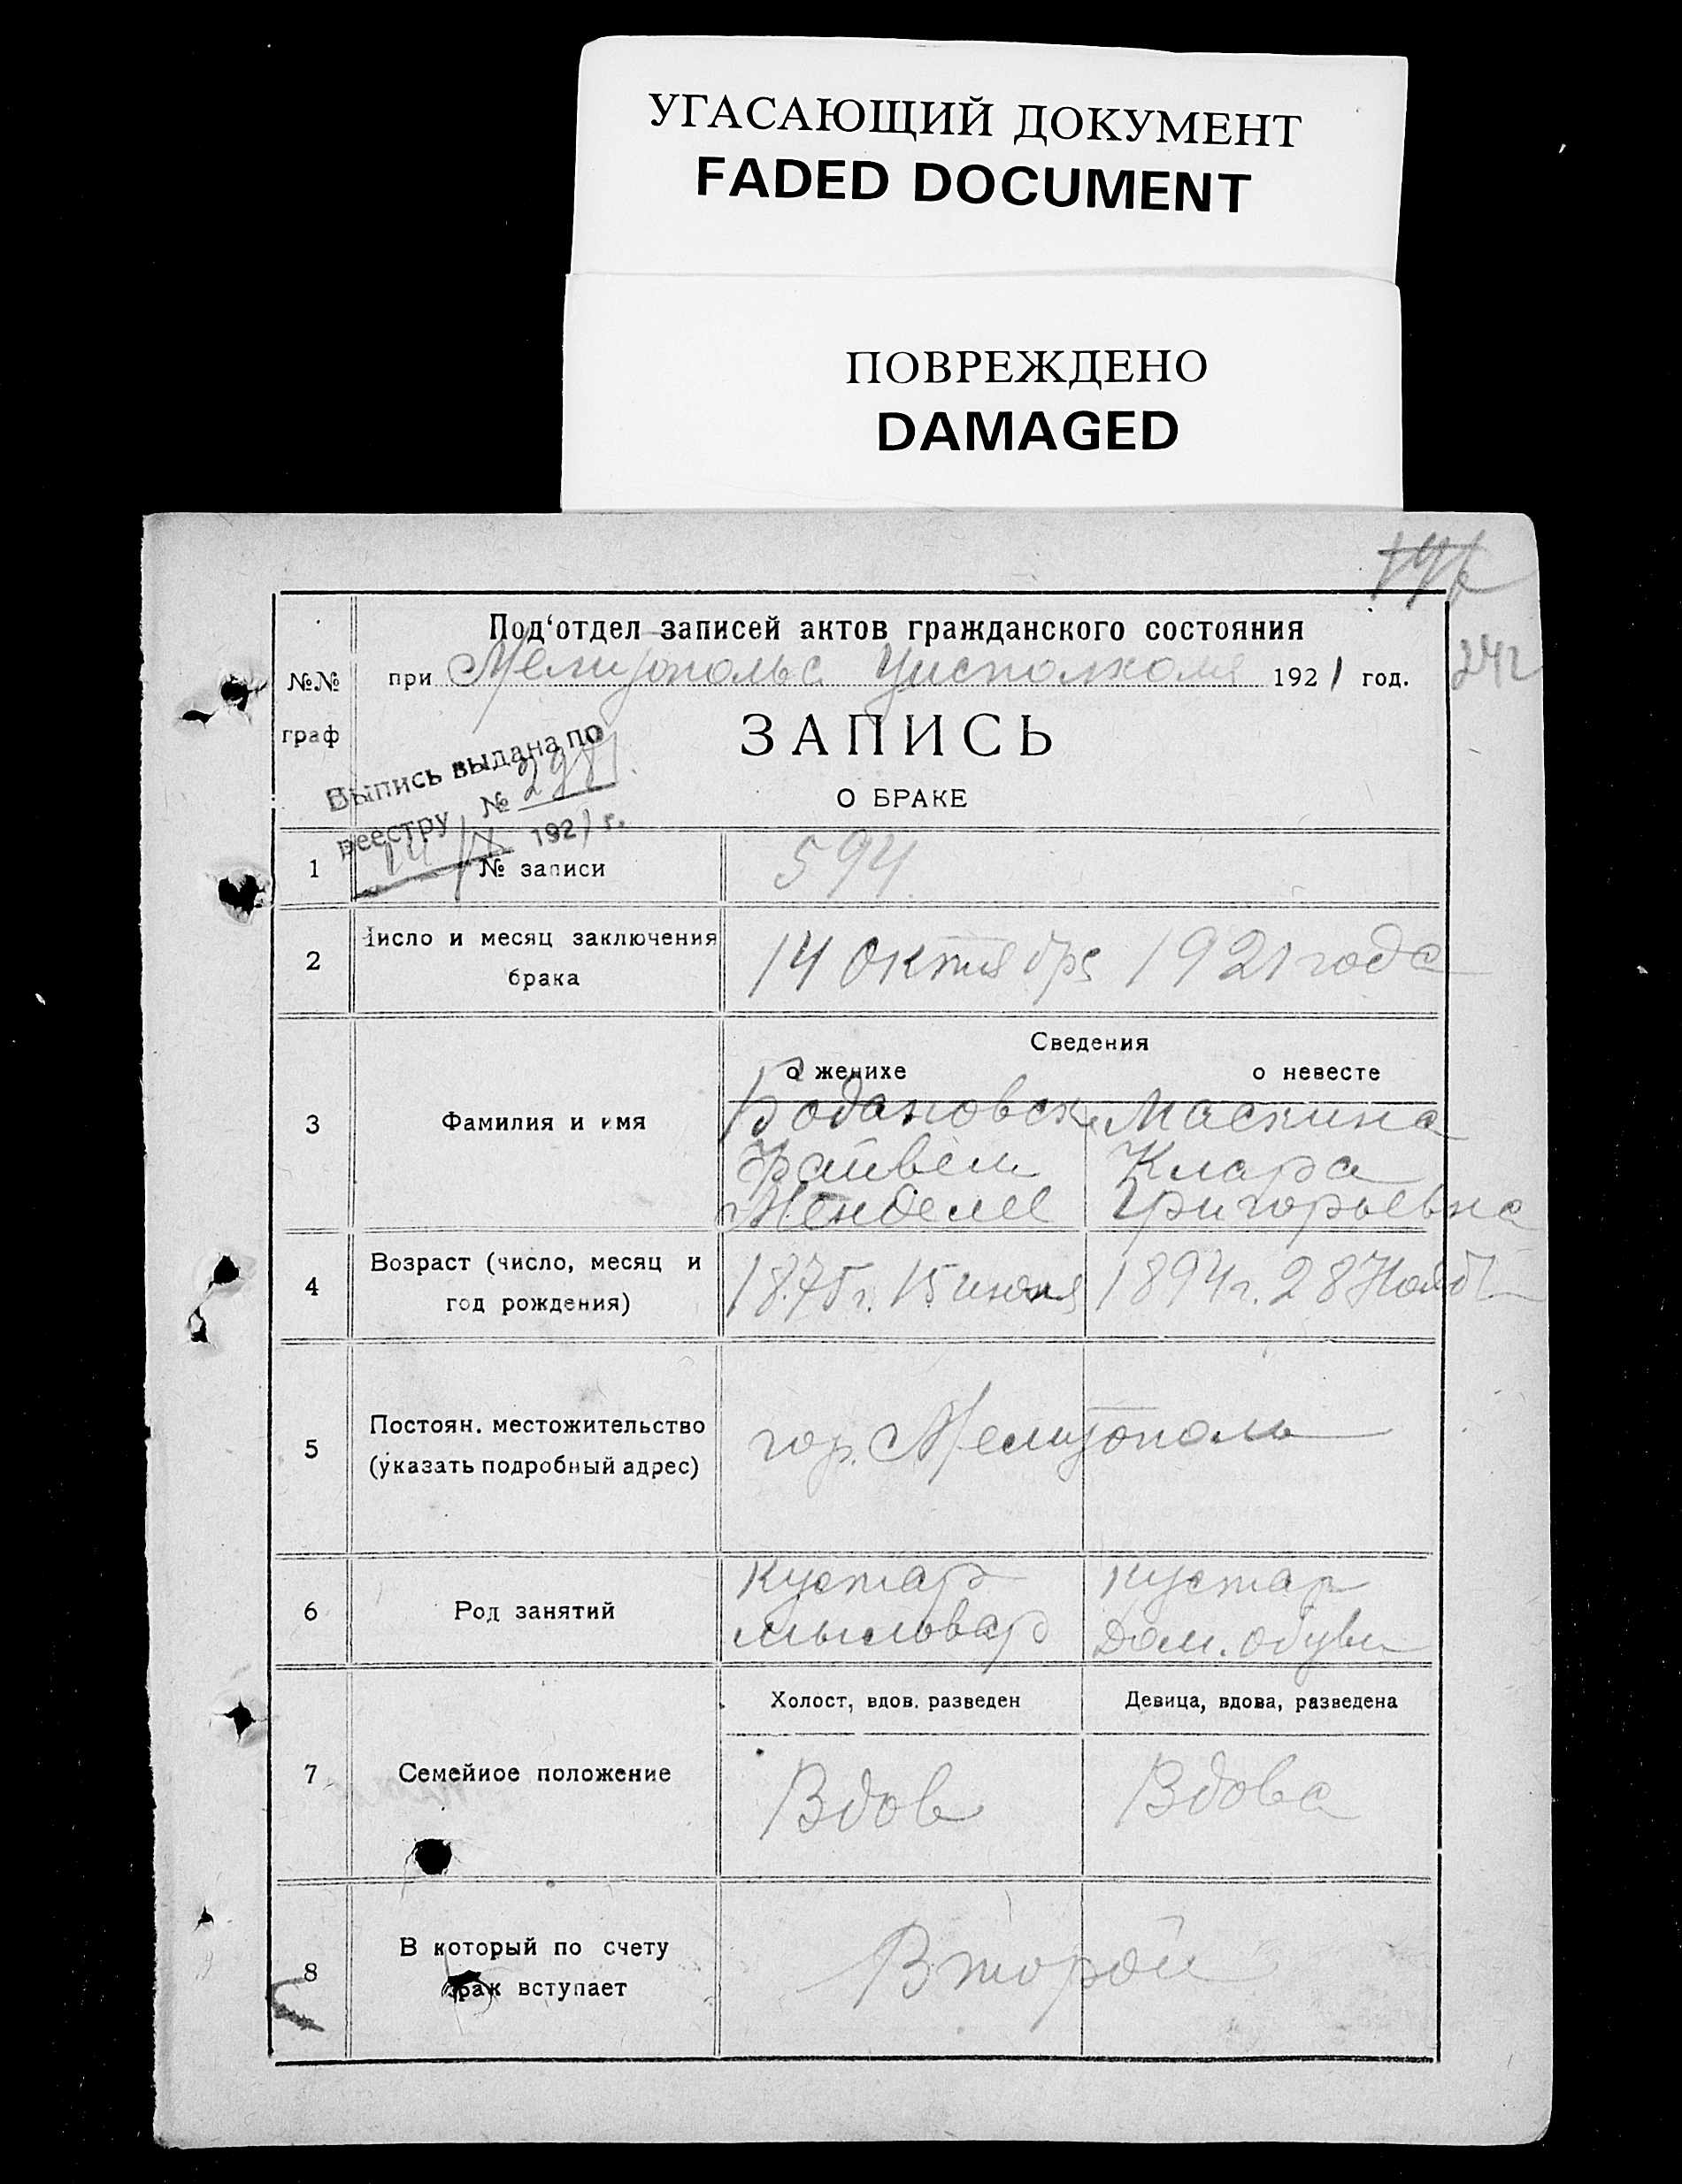 УГАСАЮЩИЙ ДОКУМЕНТ
FADED DOCUMENT
ПОВРЕЖДЕНО
DAMAGED
242
Под‘отдел записей актов гражданского состояния
№№ граф
при Мелитопольс. Уисполкома 1921 год.
ЗАПИСЬ
О БРАКЕ
Выпись выдана по
реестру №
14/X 1921 г.
1 № записи 594.
2 Число и месяц заключения брака 14 октября 1921 года
Сведения
о женихе о невесте
3 Фамилия и имя
Маскина
Файвель Клара
Менделев Григорьевна
4 Возраст (число, месяц и год рождения) 1875 г. 15 1894 г. 28 Нояб
5 Постоян. местожительство (указать подробный адрес) гор. Мелитополь
6 Род занятий
кустар кустар
мыловар Дам. обуви
Холост, вдов. разведен Девица, вдова, разведена
7 Семейное положение Вдов Вдова
8 В который по счету брак вступает Второй